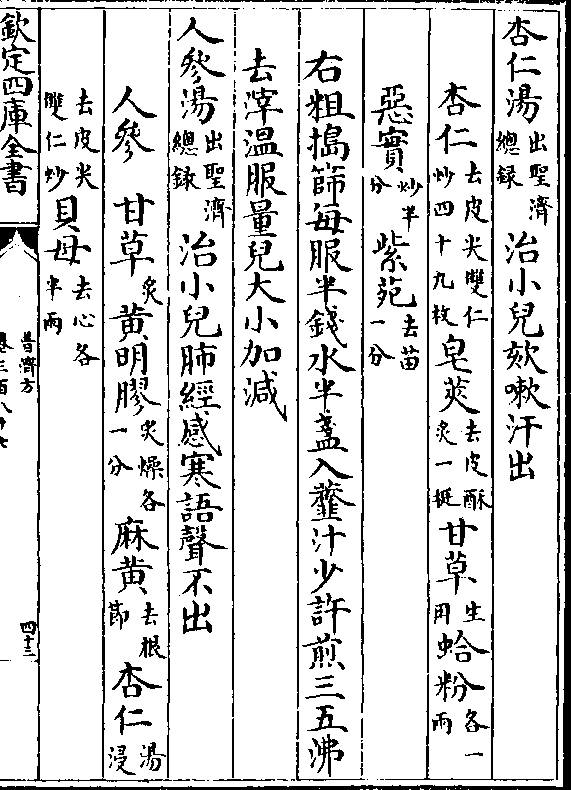 杏仁湯出聖濟總録治小兒欬嗽汗出
杏仁去皮尖雙仁炒四十九枚皂莢去皮酥炙一梃甘草生用蛤粉各一兩
惡實炒半分紫菀去苗一分
右粗搗篩每服半錢水半盞入虀汁少許煎三五沸
去滓溫服量兒大小加減
人參湯出聖濟總録治小兒肺經感寒語聲不出
人參甘草炙黄明膠炙燥各一分麻黄去根節杏仁湯浸
去皮尖雙仁炒貝母去心各半兩
欽定四庫全書
普濟方
四十三